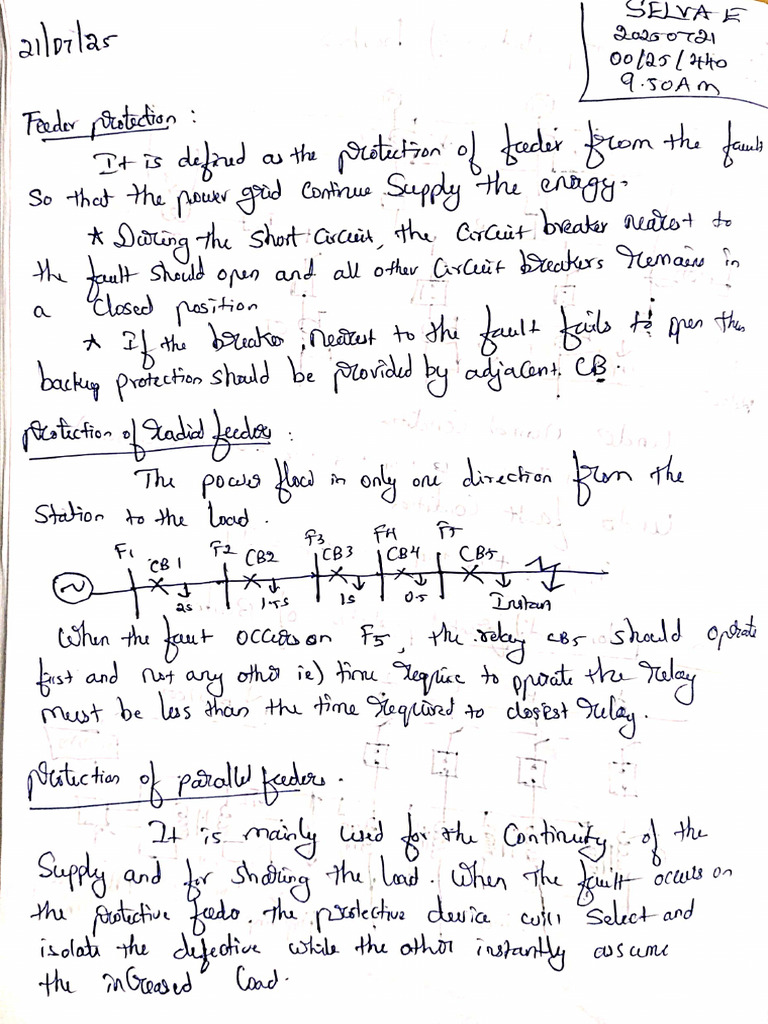 21/07/25
SELVA E
20250721
00/25/440
9.50AM
Feeder protection :
It is defined as the protection of feeder from the fault
So that the power grid continue Supply the enargy.
* During the Short circuit, the circuit breaker nearest to
the fault should open and all other circuit breakers remains in
a closed position
* If the breaker nearest to the fault fails to open then
backup protection should be provided by adjacent CB.
protection of radial feeder :
The power flow in only one direction from the
Station to the load.
F1 CB1 F2 CB2 F3 CB3 F4 CB4 F5 CB5
2s 1.5s 1s 0.5 Instan
When the fault occurs on F5, the relay CB5 should operate
first and not any other ie) time require to oprate the relay
must be less than the time required to closest relay.
protection of parallel feeders.
It is mainly used for the continuity of the
Supply and for sharing the load. When the fault occurs on
the protective feedo. The protective device will Select and
isolate the defective while the other instantly assume
the increased load.